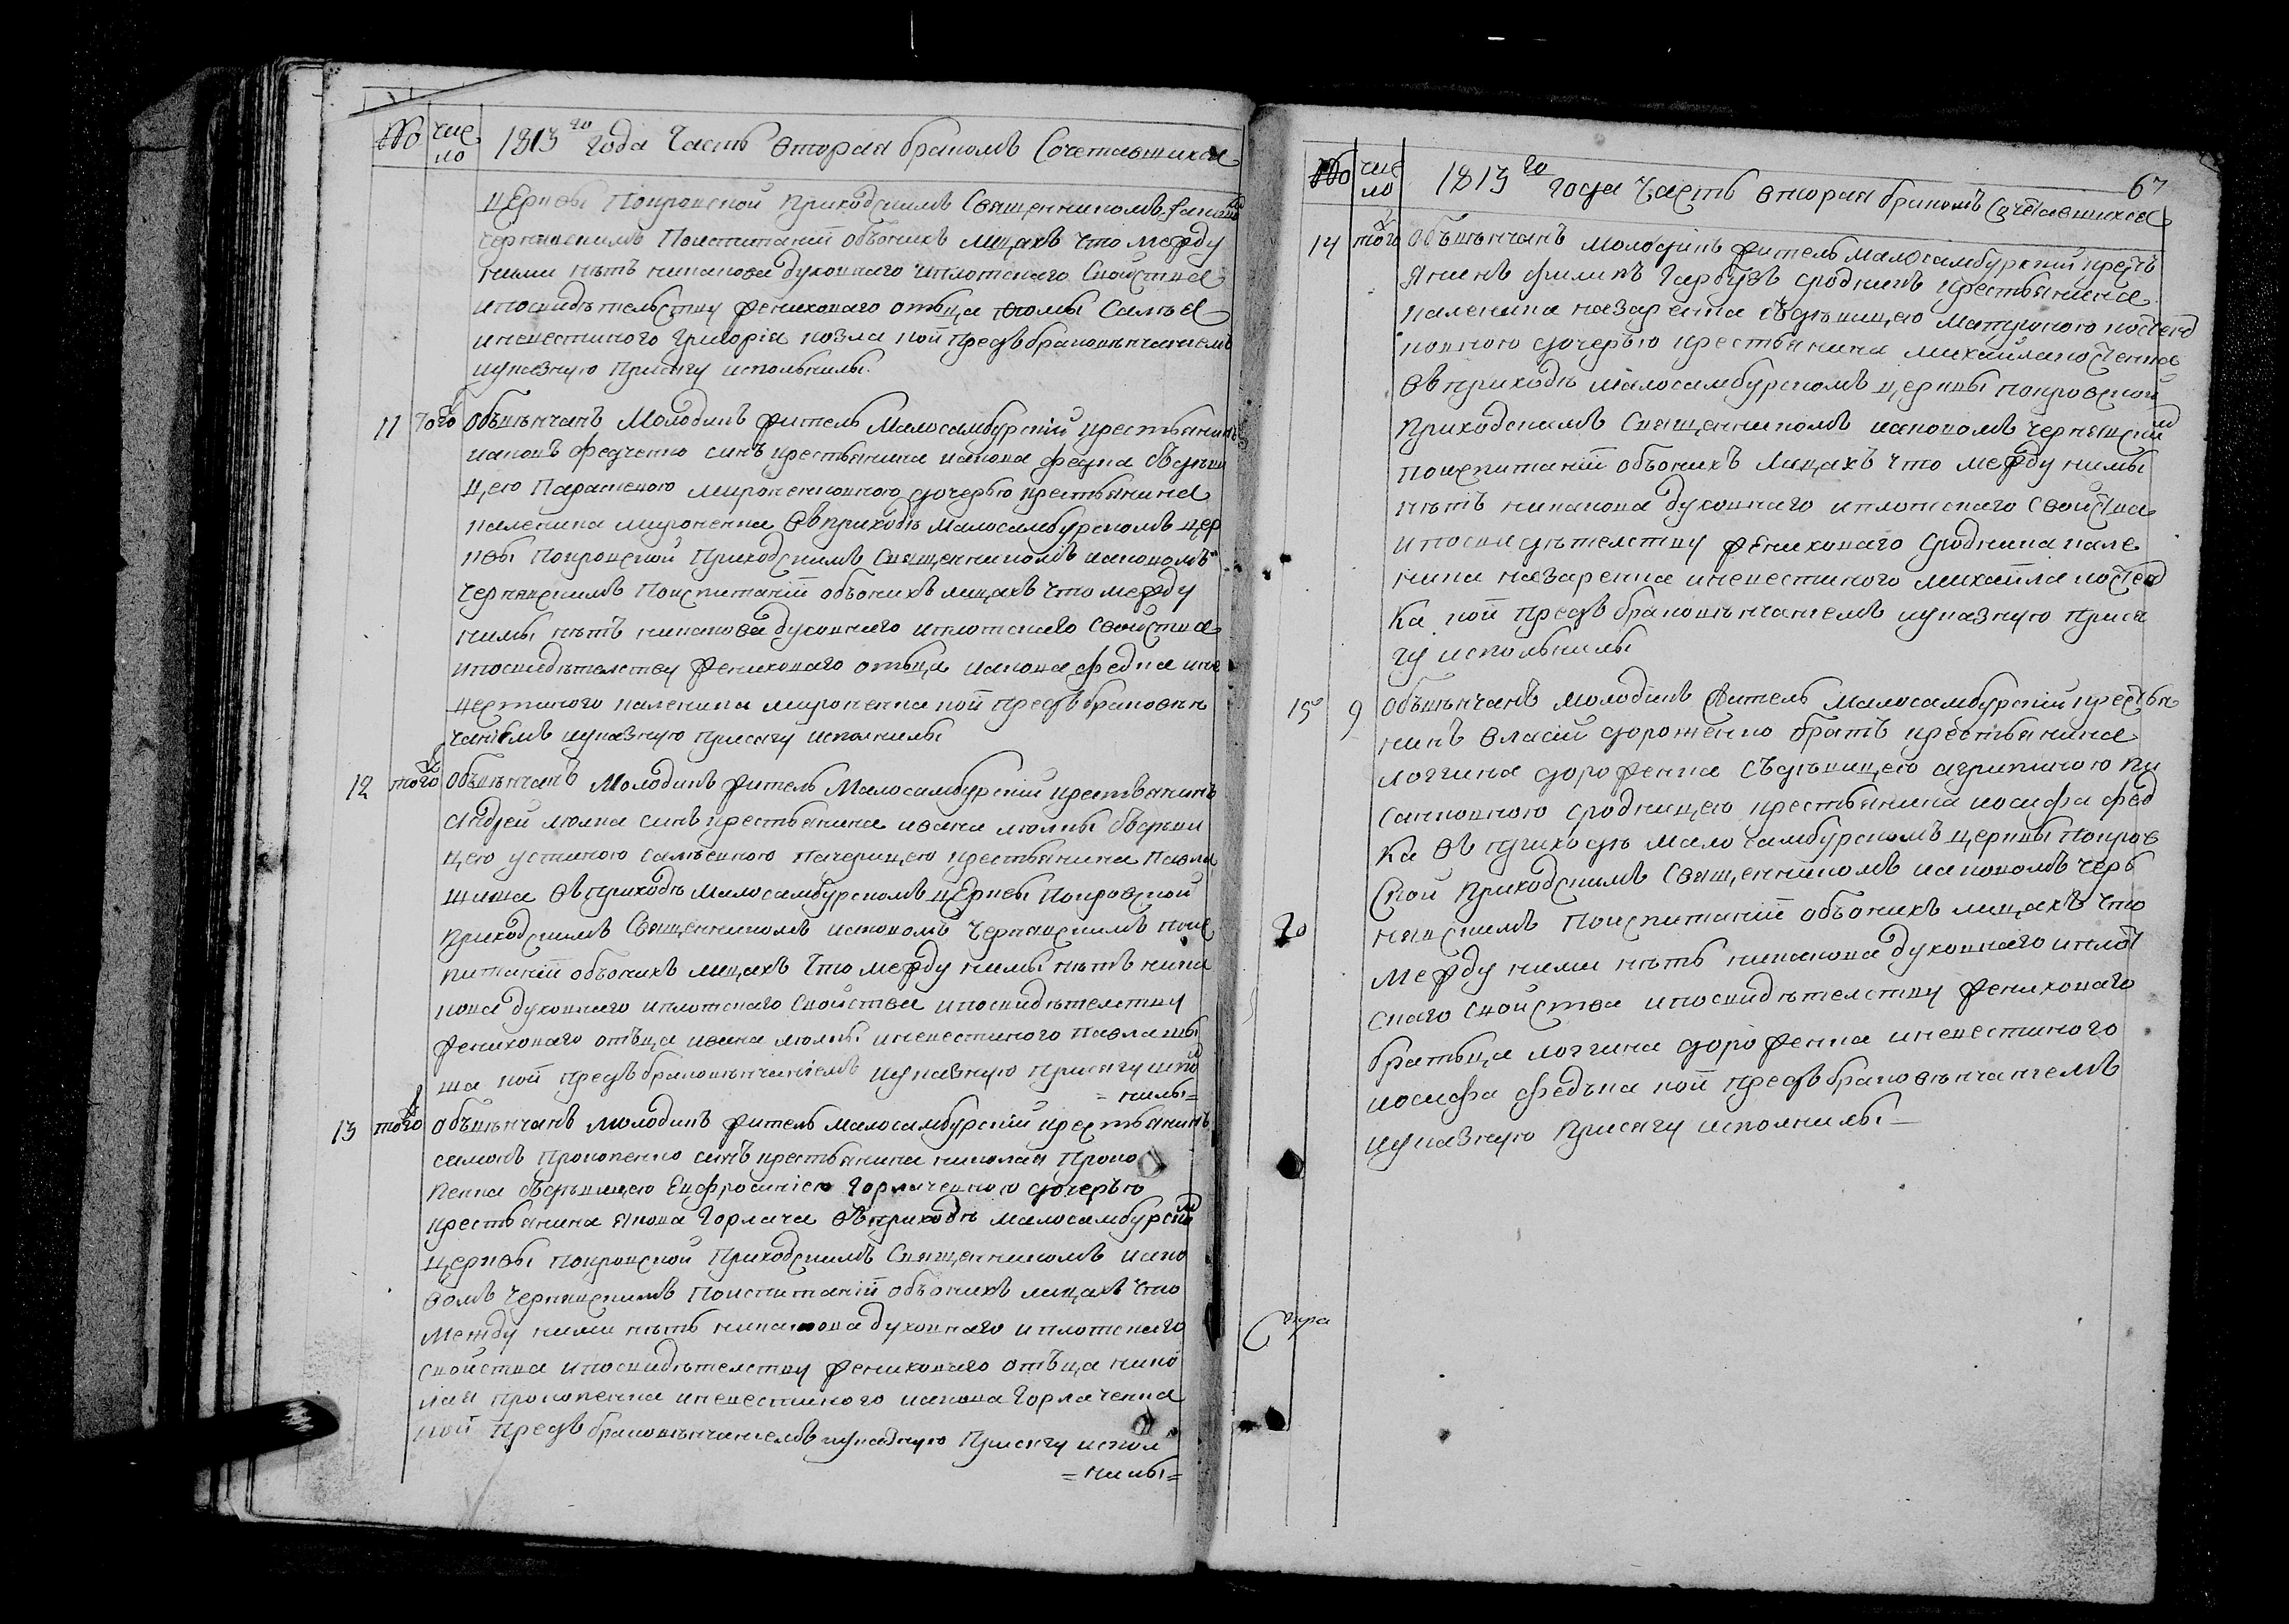 № чис
ло
1813го года Часть вторая бракомъ Сочетавшихся
церквы Покровской Приходскимъ Священникомъ
Чернявскимъ Поиспитаніи объоныхъ лицахъ что между
ними нѣтъ никакова духовнаго иплотскаго Свойства
ипосвидѣтельству жениховаго отьца Самъя
иневестиного Григорія козла кой предъ браковѣнчаніемъ
иуказную присягу испольнилы.
11 того Объвѣнчанъ Молодикъ житель Малосамбурскій крестьянинъ
иаковъ Федченко синъ крестьянина иакова федка объдѣви
цею Параскевою мироненковною дочерью крестьянина
каленика мироненка въприходѣ малосамбурскомъ цер
квы Покровской Приходскимъ Священникомъ иаковомъ
чернявскимъ Поиспитаніи объоныхъ лицахъ что между
нимы нѣтъ никакова духовнаго иплотскаго свойства
ипосвидѣтелству жениховаго отьца иакова федка ине
вестиного каленика мироненка кой предъ браковѣн
чаніемъ иуказную присягу исполнилы
12 того Объвѣнчанъ Молодикъ житель Малосамбурскій крестьянинъ
Андрей люлка синъ крестьянина ивана люлкы объдѣви
цею устиною самъевною пачерицею крестьянина Павла
шиша въприходѣ малосамбурскомъ церквы Покровской
Приходскимъ Священникомъ иаковомъ чернявскимъ поис
питаніи объоныхъ лицахъ что между нимы нѣтъ ника
кова духовнаго иплотскаго свойства ипосвидѣтелству
жениховаго отьца ивана люлкы иневестиного Павла шы
ша кой предъ браковѣнчаніемъ иуказную присягу испо
=нилы=
13 того Объвѣнчанъ молодикъ житель малосамбурскій крестьянинъ
самонъ прокопенко синъ крестьянина николая Проко
пенка объдѣвицею Евфросиніею Горлачевною дочерью
крестьянина якова Горлача въприходѣ малосамбурским
церквы покровской Приходскимъ Священникомъ иако
вомъ Чернявскимъ Поиспитаніи объоныхъ лицахъ что
Между ними нѣтъ никакова духовнаго иплотскаго
свойства ипосвидѣтелству жениховаго отьца нико
лая прокопенка иневестиного иакова Горлаченка
кой предъ браковѣнчаніемъ иуказную Присягу испол
=нилы=
№ чис
ло
1813го года Часть вторая бракомъ Сочетавшихся 67
14 того Объвѣнчанъ молодикъ житель малосамбурскій крест
янинъ филипъ Гарбузъ сродникъ крестьянина
каленика назаренка съдѣвицею Матроною костен
ковною дочерью крестьянина михайла костенка
въприходѣ малосамбурскомъ церквы покровской
Приходскимъ Священникомъ иаковомъ чернявским
поиспитаніи объоныхъ лицахъ что между нимы
нѣтъ никакова духовнаго иплотскаго свойства
ипосвидѣтелству жениховаго сродника кале
ника назаренка иневестиного михайла костен
ка кой предъ браковѣнчаніемъ иуказную прися
гу испольнилы
15 9 Объвѣнчанъ молодикъ житель Малосамбурскій крестья
нинъ власій дороженко братъ крестьянина
логгина дороженка съдѣвицею агрипиною
сродницею крестьянина иосифа фед
ка въ приходѣ малосамбурскомъ церквы покров
ской Приходскимъ Священникомъ иаковомъ черъ
нявскимъ Поиспитаніи объоныхъ лицахъ что
между ними нѣтъ никакова духовнаго иплот
скаго свойства ипосвидѣтелству жениховаго
братьца логгина дороженка иневестиного
иосифа федька кой предъ браковѣнчаніемъ
иуказную присягу исполнилы